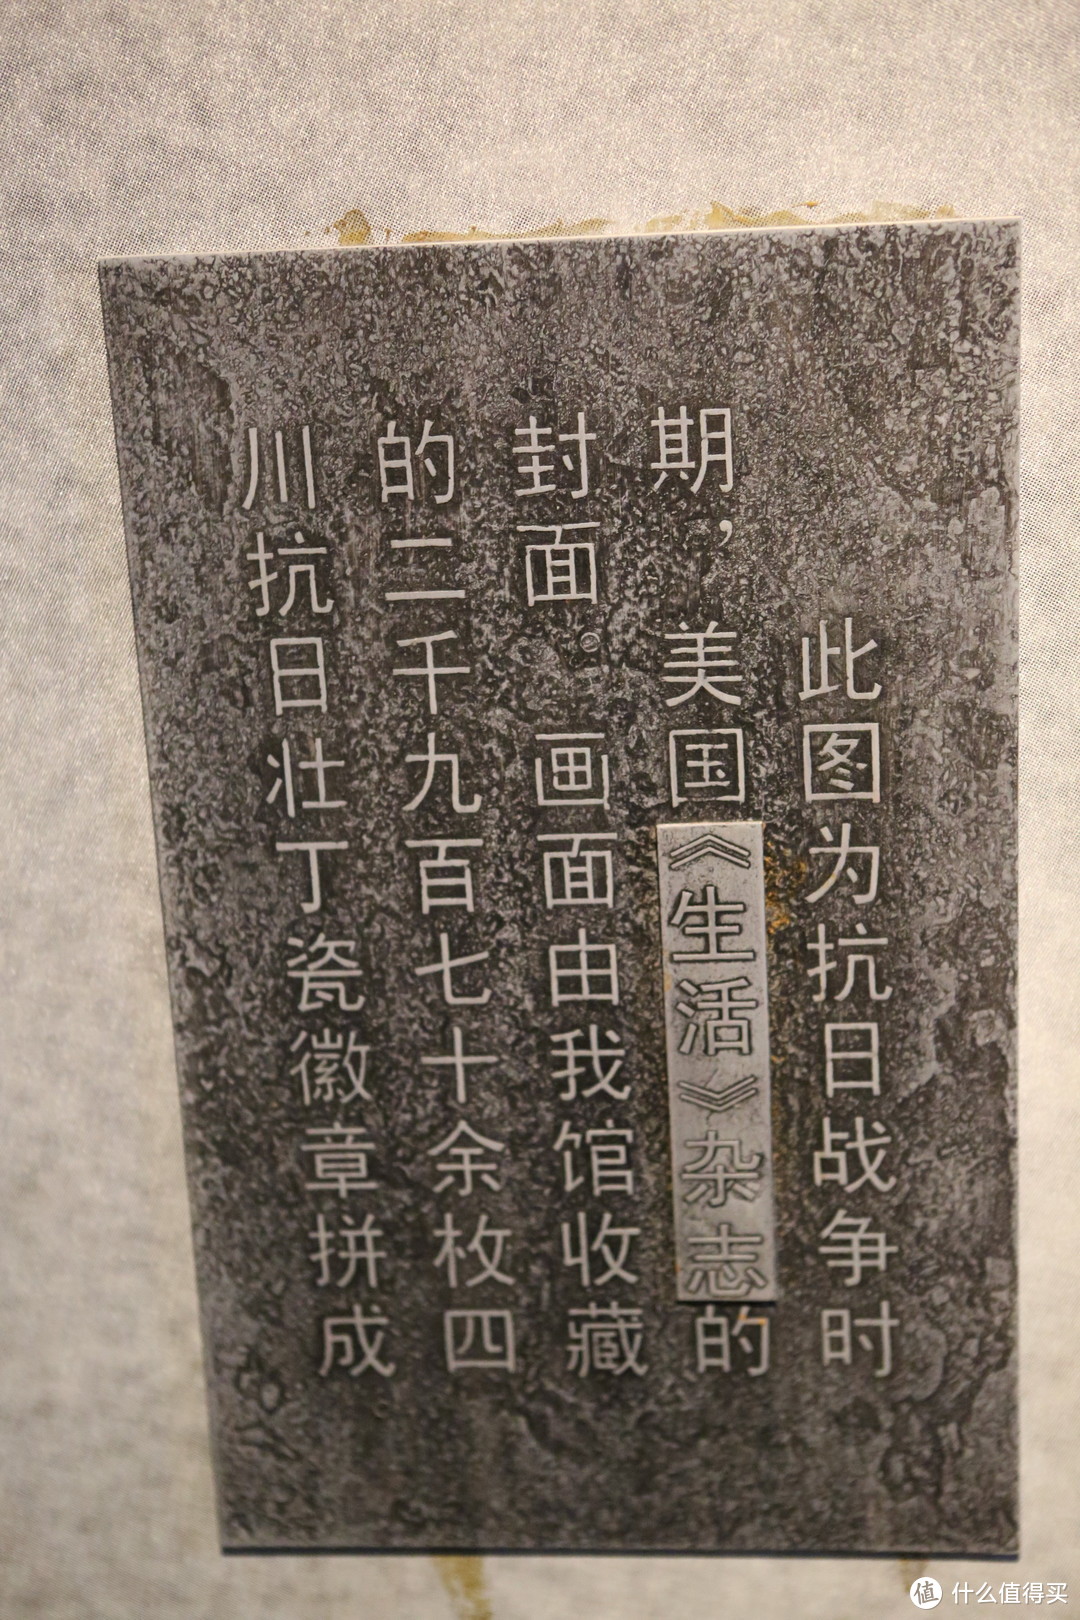 此图为抗日战争时
期，美国《生活》杂志的
封面。画面由我馆收藏
的二千九百七十余枚四
川抗日壮丁瓷徽章拼成。
值 什么值得买